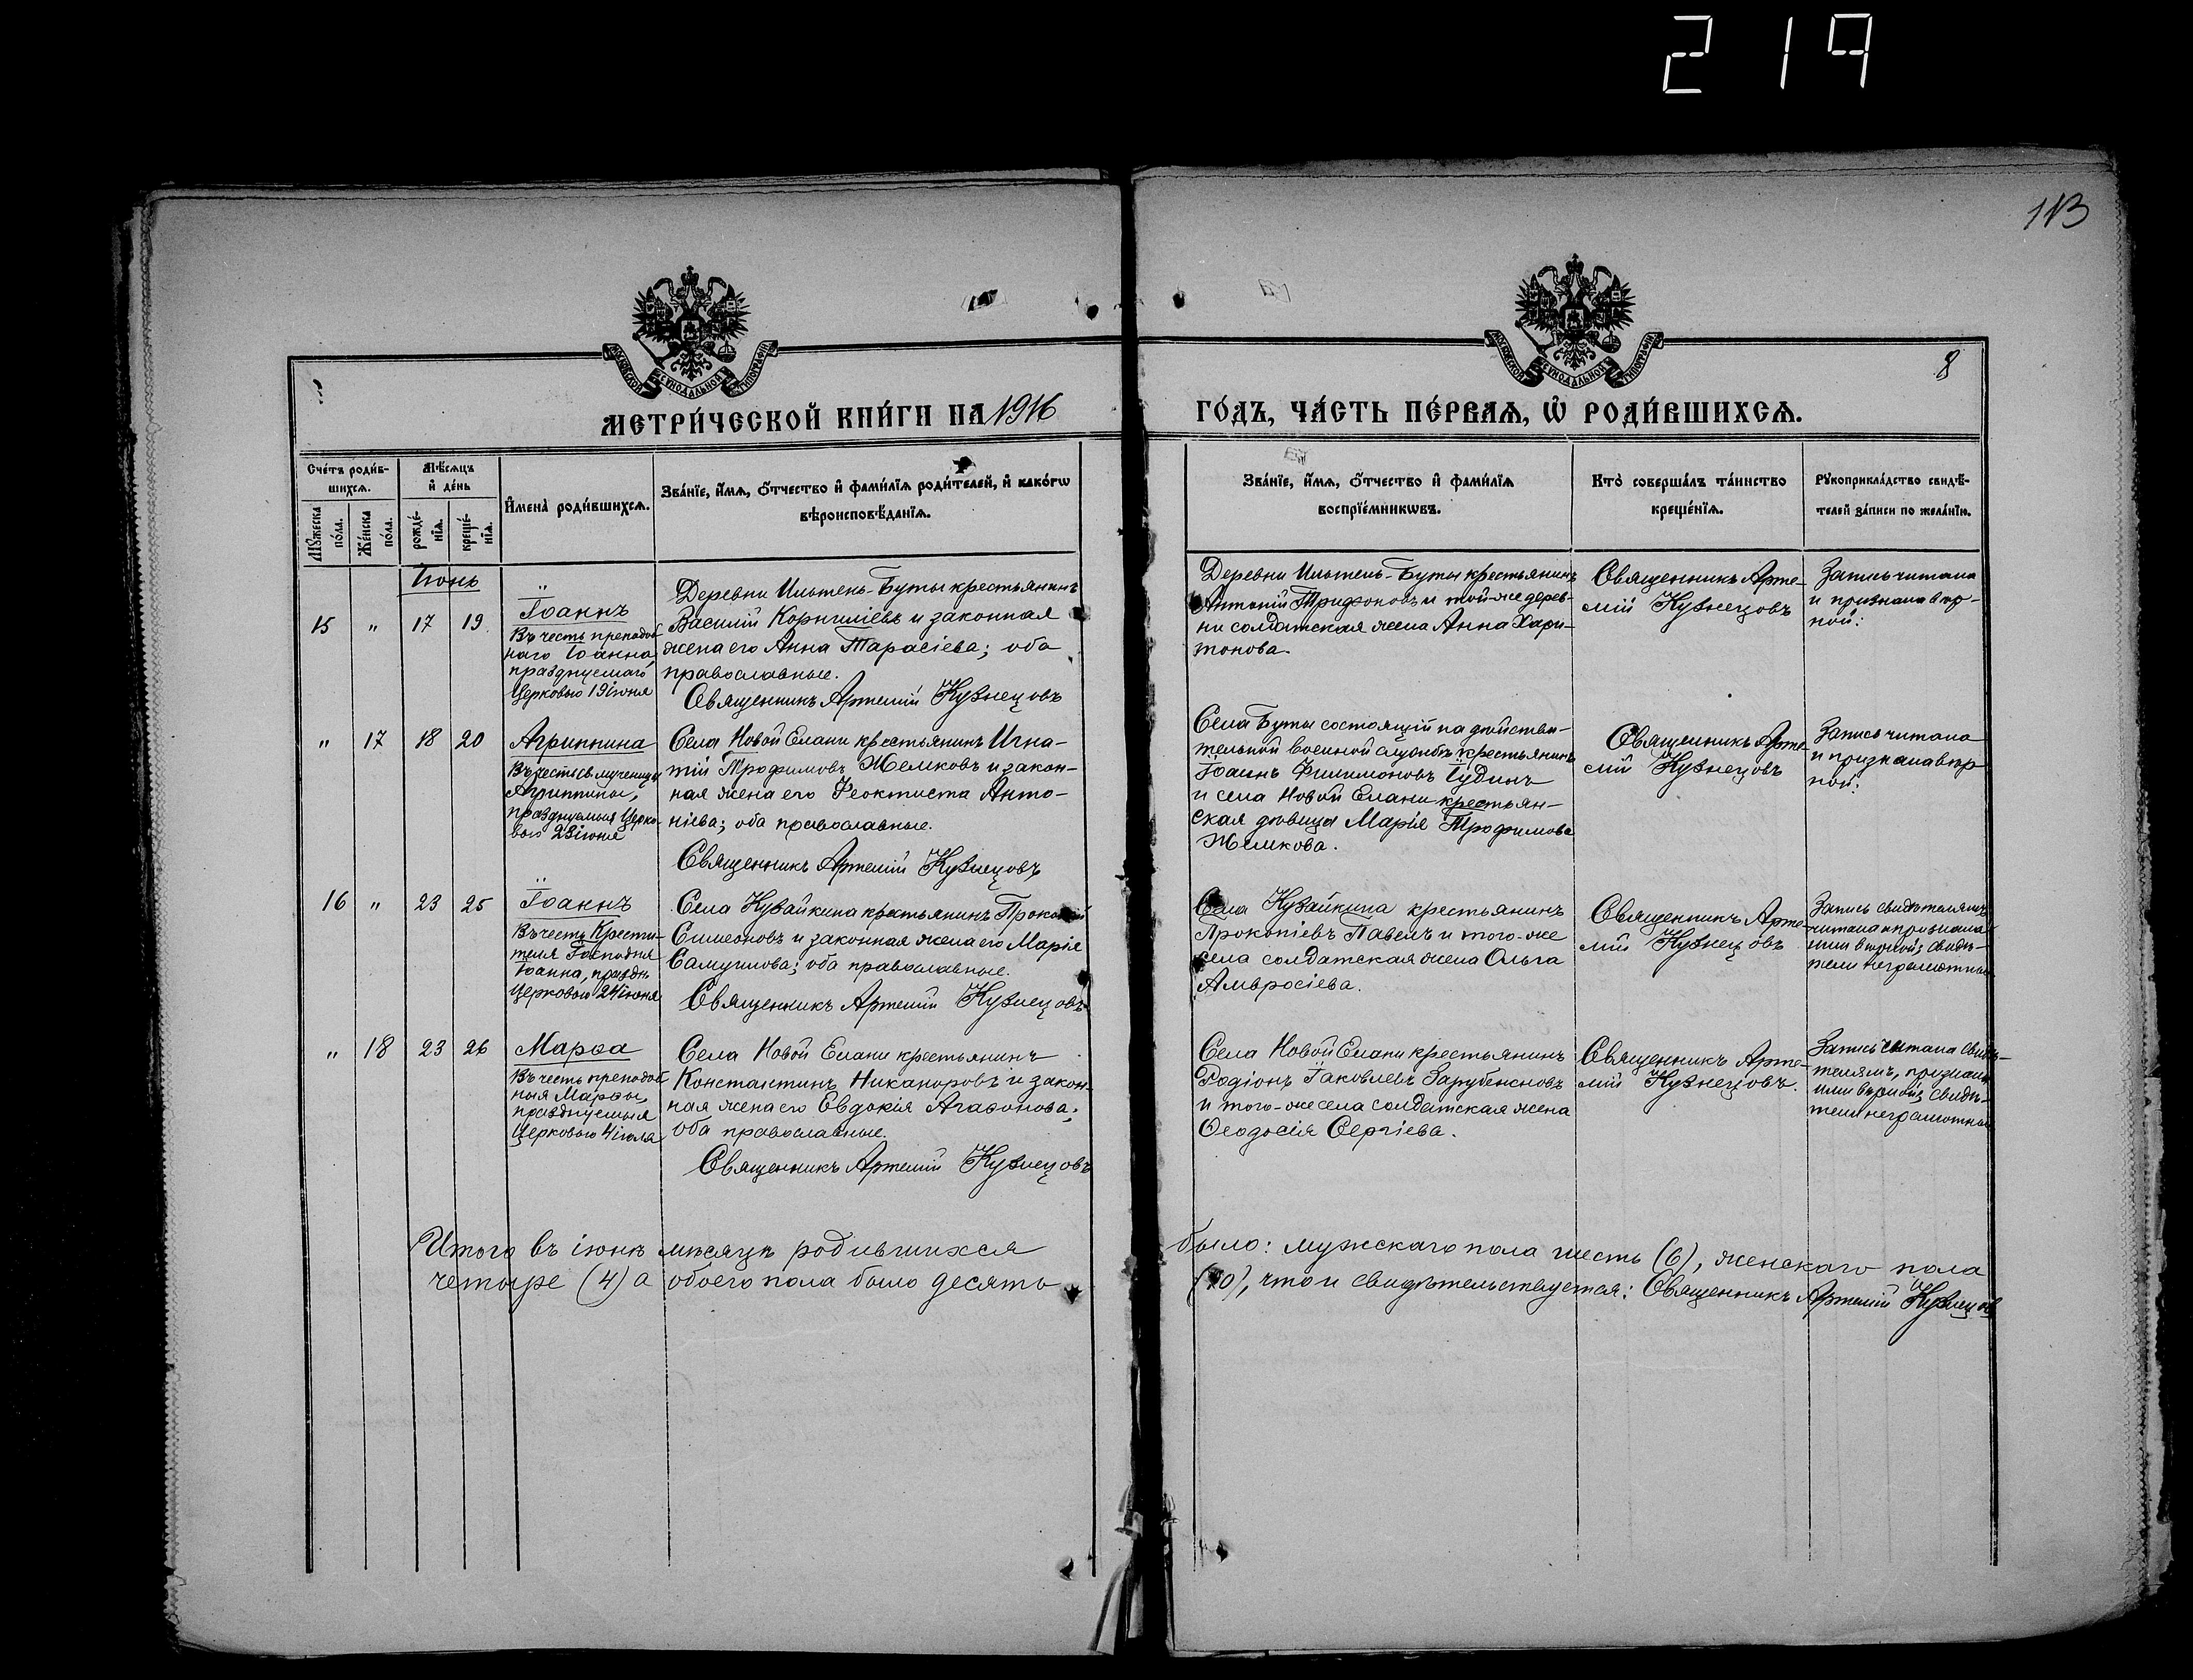 219
113
8
МОСКОВСКОЙ СѴНОДАЛЬНОЙ ТИПОГРАФІИ
МОСКОВСКОЙ СѴНОДАЛЬНОЙ ТИПОГРАФІИ
МЕТРИ́ЧЕСКОЙ КНИ́ГИ НА 1916
ГО́ДЪ, ЧА́СТЬ ПЕ́РВАѦ, Ѡ҆ РОДИ́ВШИХСѦ.
Сче́тъ роди́в-
шихсѧ.
Мѣ́сѧцъ
и҆ де́нь
И҆мена̀ роди́вшихсѧ.
Зва́нїе, и҆́мѧ, ѻ҆́тчество и҆ фами́лїѧ роди́телей, и҆ како́гѡ
вѣроисповѣ́данїѧ.
Мꙋ́жеска
по́ла.
Же́нска
по́ла.
рожде́-
нїѧ.
креще́-
нїѧ.
Зва́нїе, и҆́мѧ, ѻ҆́тчество и҆ фами́лїѧ
воспрїе́мникѡвъ.
Кто̀ соверша́лъ та́инство
креще́нїѧ.
Рꙋкоприкла́дство свидѣ́-
телей за́писи по жела́нїю.
Іюнь
15 " 17 19
Іоаннъ
Въ честь преподоб
наго Іоанна,
празднуемаго
Церковью 19 іюня
Деревни Ильтень-Буты крестьянинъ
Василій Корниліевъ и законная
жена его Анна Тарасіева; оба
православные.
Священникъ Артемій Кузнецовъ
Деревни Ильтень-Буты крестьянинъ
Антоній Трифоновъ и той-же дерев-
ни солдатская жена Анна Хари-
тонова.
Священникъ Арте-
мій Кузнецовъ
Запись читана
и признана вѣр-
ной:
" 17 18 20
Агриппина
Въ честь св. мученицы
Агриппины,
празднуемыя Церко-
вью 23 іюня
Села Новой Елани крестьянинъ Игна-
тій Трофимовъ Жемковъ и закон-
ная жена его Феоктиста Анто-
ніева; оба православные.
Священникъ Артемій Кузнецовъ
Села Буты состоящій на действи-
тельной военной службѣ крестьянинъ
Іоаннъ Филимоновъ Іудинъ
и села Новой Елани крестьян-
ская дѣвица Марія Трофимова
Жемкова.
Священникъ Арте-
мій Кузнецовъ
Запись читана
и признана вѣр
ной:
16 " 23 25
Іоаннъ
Въ честь Крести-
теля Господня
Іоанна, праздн.
Церковью 24 іюня
Села Кувайкина крестьянинъ Прокопій
Симеоновъ и законная жена его Марія
Самуилова; оба православные.
Священникъ Артемій Кузнецовъ
Села Кувайкина крестьянинъ
Прокопіевъ Павелъ и того-же
села солдатская жена Ольга
Амвросіева.
Священникъ Арте-
мій Кузнецовъ
Запись свидѣтелямъ
читана и признана
ими вѣрной; свидѣ-
тели неграмотны
" 18 23 26
Марѳа
Въ честь преподоб
ныя Марѳы,
празднуемыя
Церковью 4 іюля
Села Новой Елани крестьянинъ
Константинъ Никаноровъ и закон-
ная жена его Евдокія Агаѳонова;
оба православные.
Священникъ Артемій Кузнецовъ
Села Новой Елани крестьянинъ
Родіонъ Іаковлевъ Зарубежновъ
и того-же села солдатская жена
Ѳеодосія Сергіева.
Священникъ Арте-
мій Кузнецовъ.
Запись читана свидѣ-
телямъ, признана
ими вѣрной; свидѣ-
тели неграмотны
Итого въ іюнѣ мѣсяцѣ родившихся было: мужскаго пола шесть (6), женскаго пола
четыре (4) а обоего пола было десять (10), что и свидѣтельствуется: Священникъ Артемій Кузнецовъ